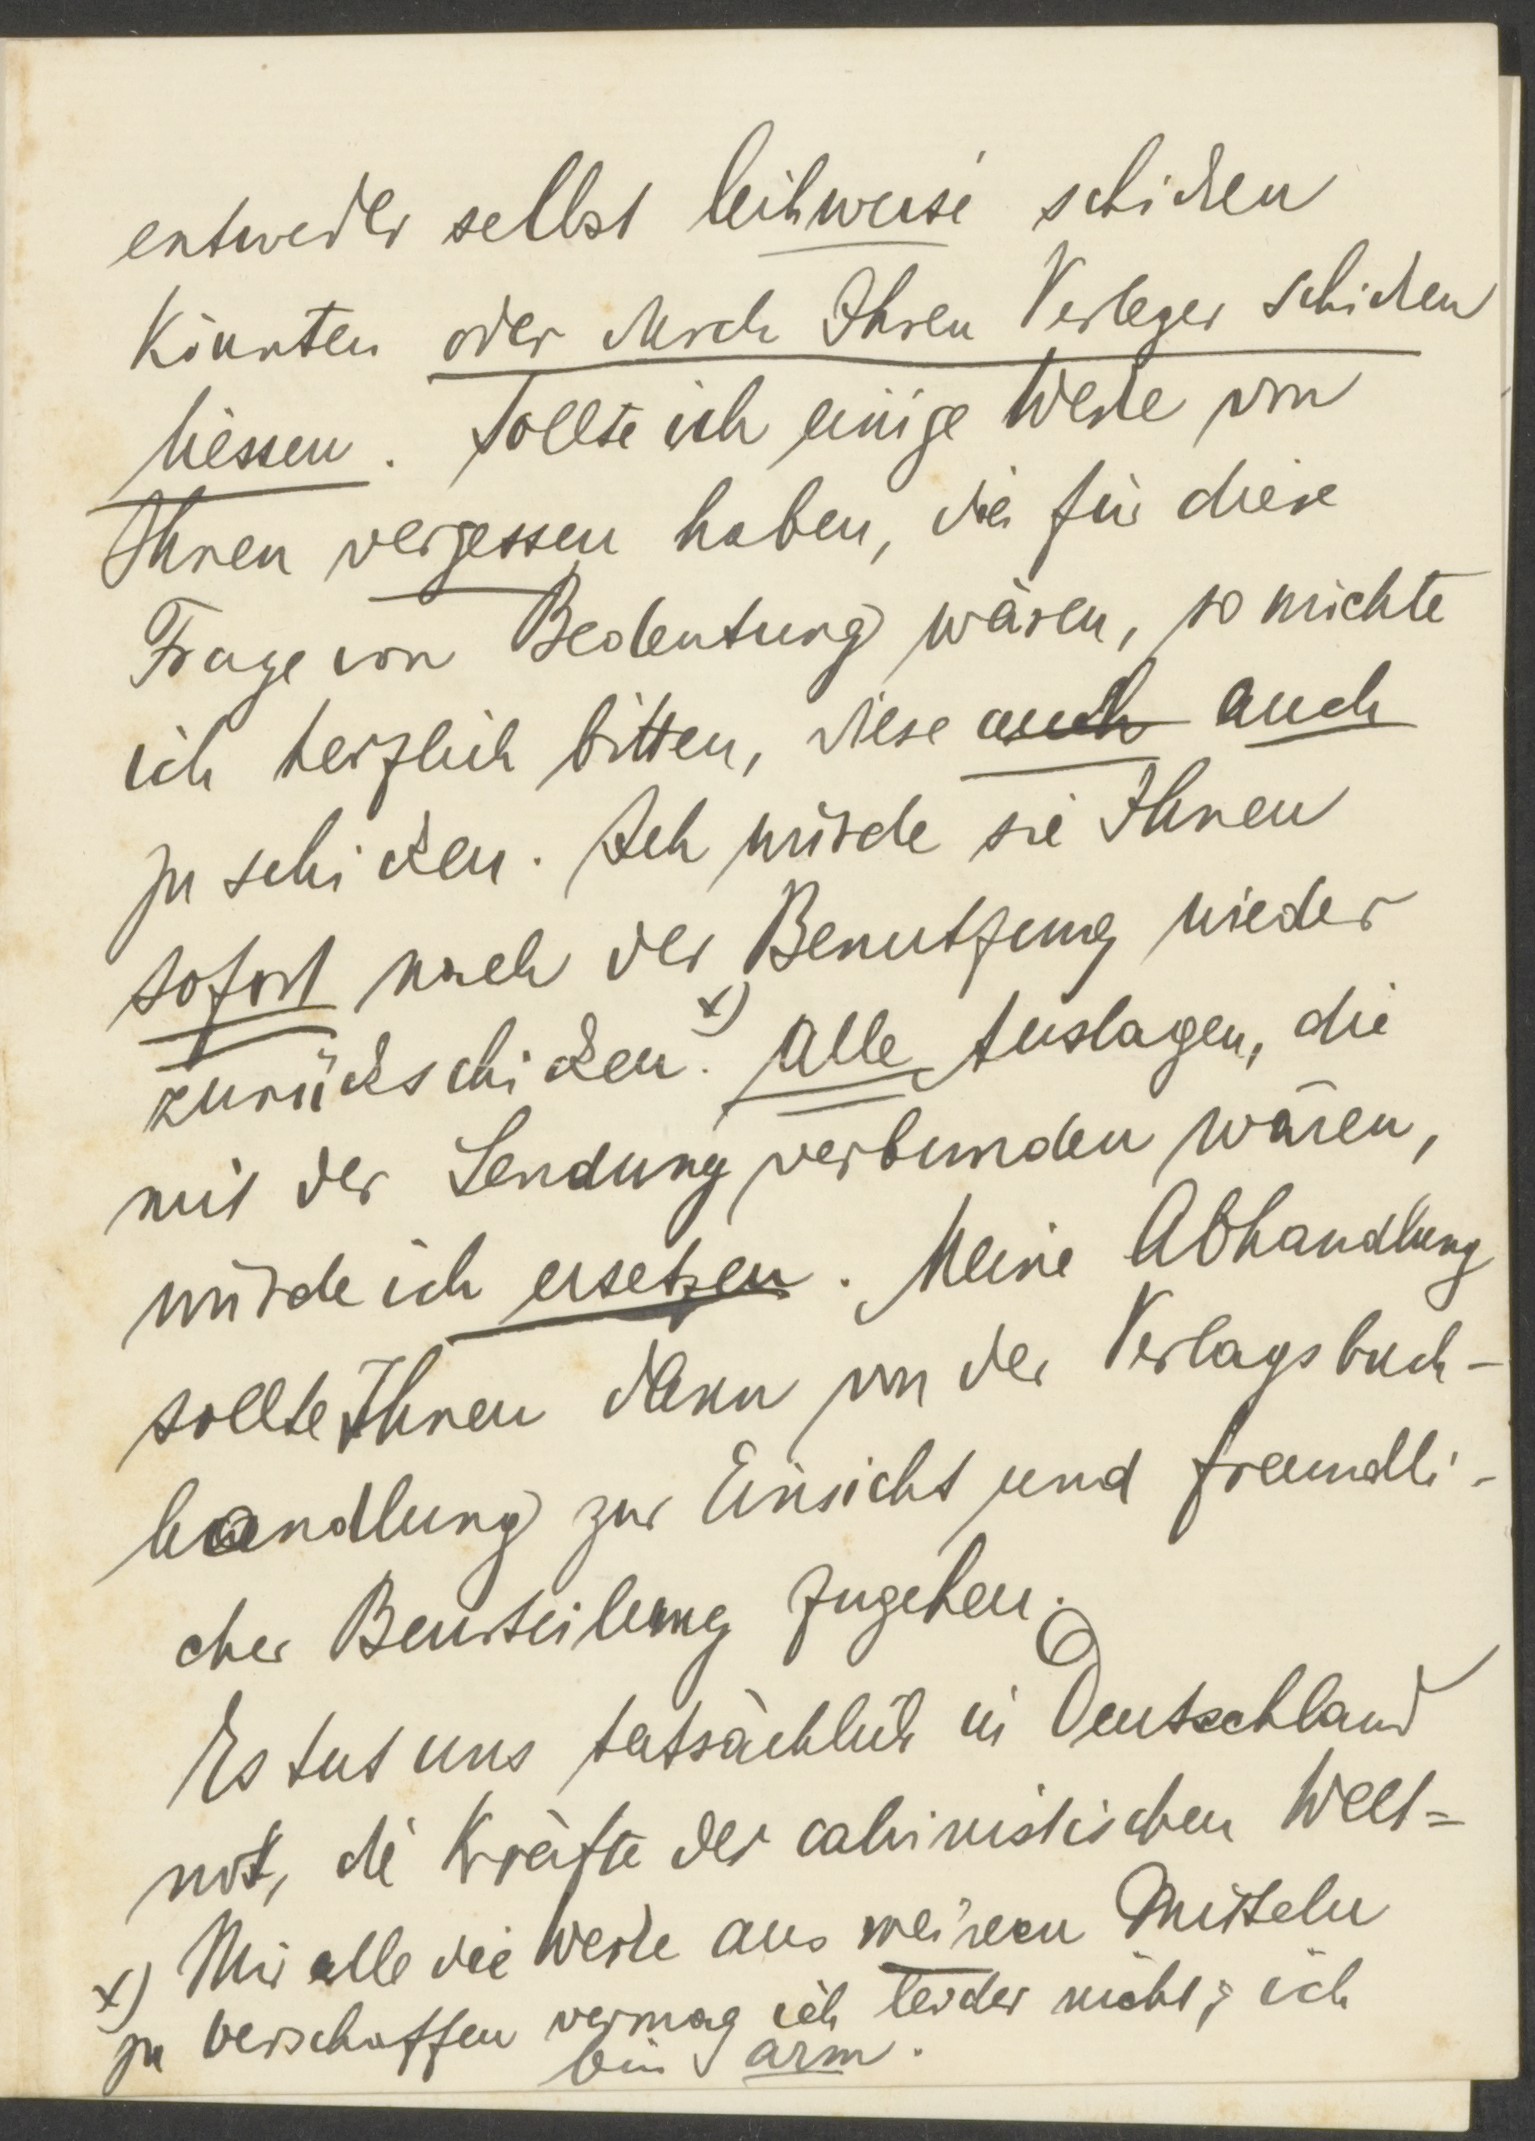 entweder selbst leihweise schicken
könnten oder durch Ihren Verleger schicken
liessen. Sollte ich einige Werke von
Ihnen vergessen haben, die für diese
Frage von Bedeutung wären, so möchte
ich herzlich bitten, diese auch auch
zu schicken. Ich würde sie Ihnen
sofort nach der Benutzung wieder
zurückschicken. x) Alle Auslagen, die
mit der Sendung verbunden wären,
würde ich ersetzen. Meine Abhandlung
sollte Ihnen dann von der Verlagsbuch-
handlung zur Einsicht und freundli-
cher Beurteilung zugehen.
Es tut uns tatsächlich in Deutschland
not, die Kräfte der calvinistischen Welt=
x) Mir alle die Werke aus meinen Mitteln
zu verschaffen vermag ich leider nicht; ich
bin arm.